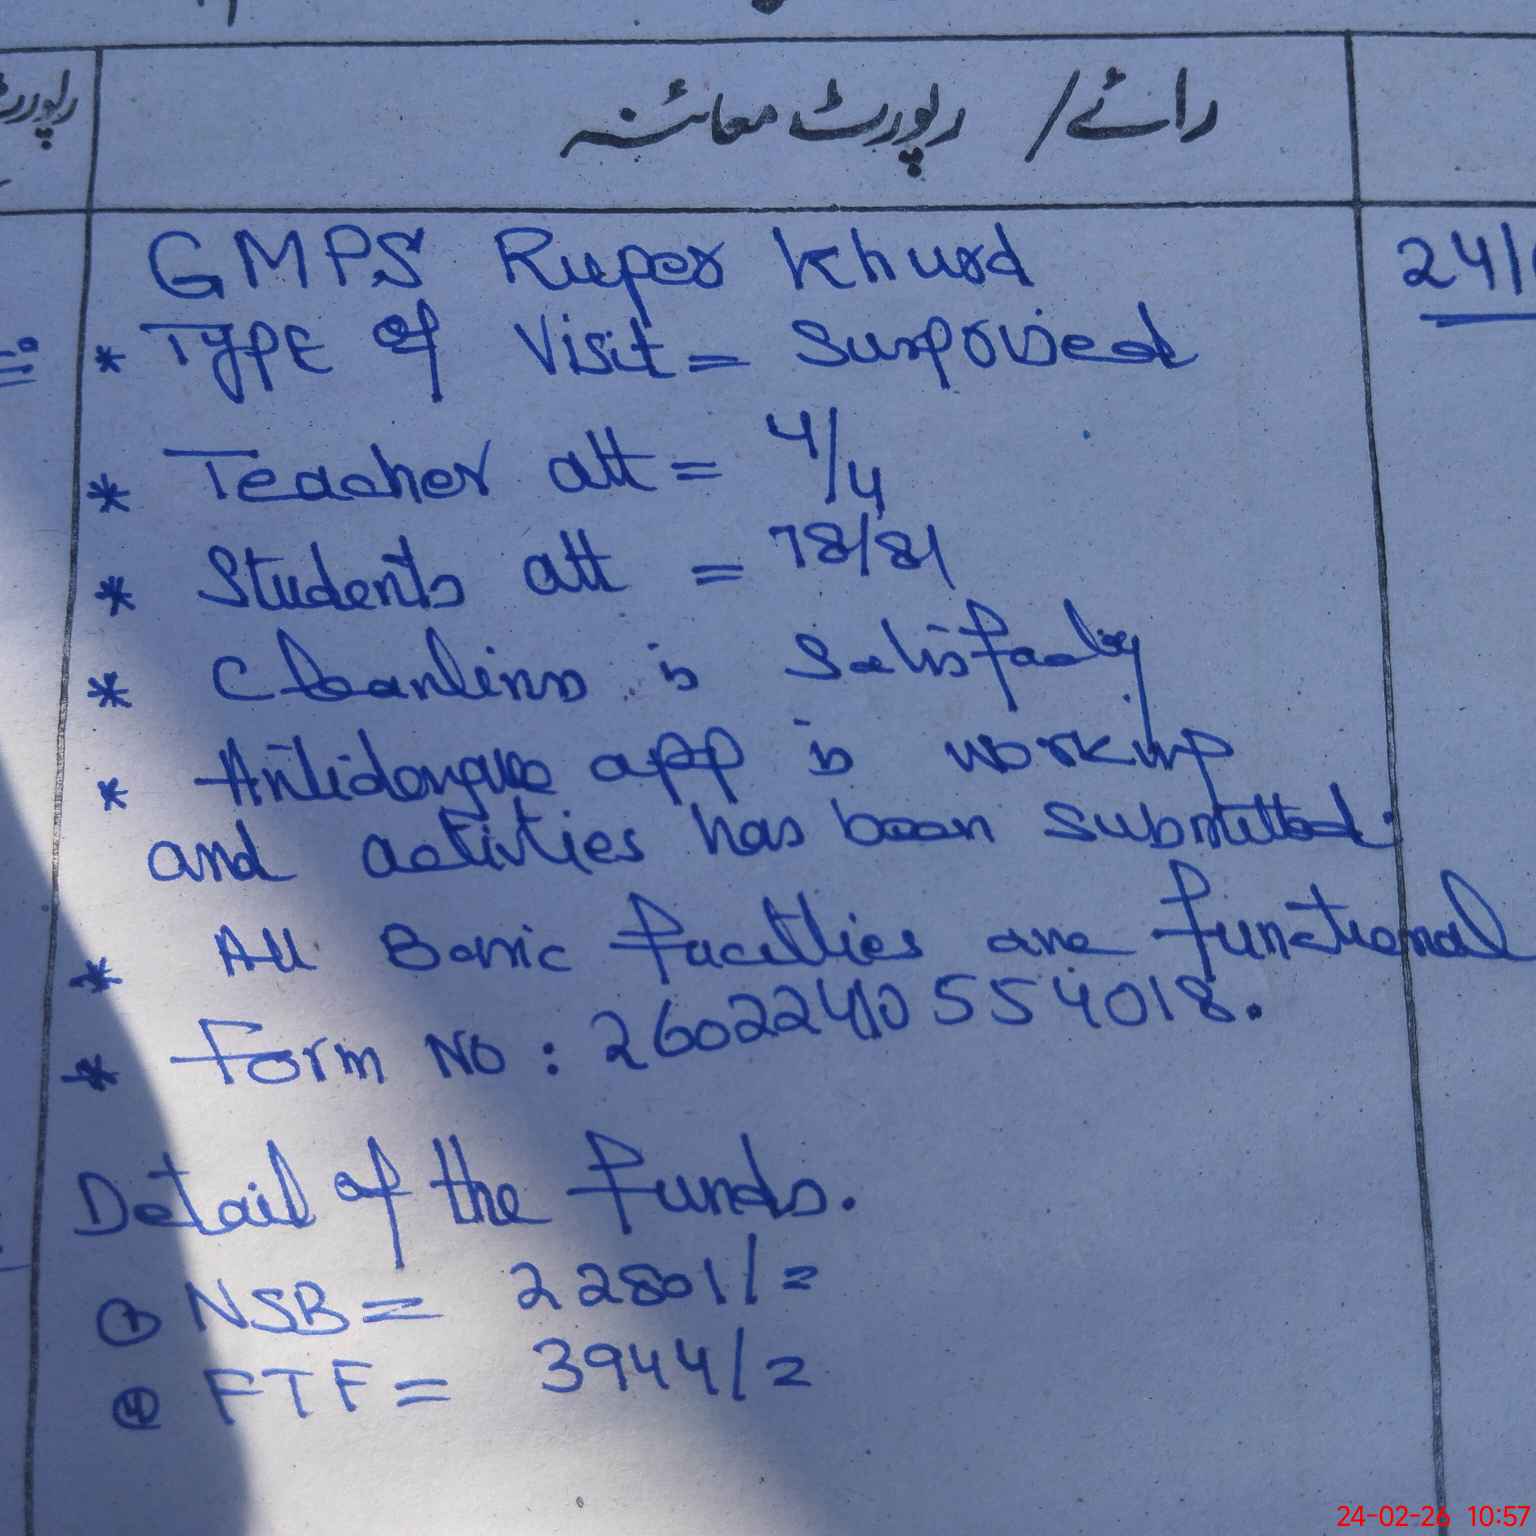 رائے / رپورٹ معائنہ
رپورٹ
GMPS Ruper Khurd
24/
* Type of Visit = Surprised
* Teacher att = 4/4
* Students att = 78/81
* Cleanlinss is Satisfactry
* Antidengue app is working
and activities has been submitted.
* All Basic facilties are functional
* Form No : 26022410554018.
Detail of the funds.
① NSB = 22801/=
② FTF = 3944/=
24-02-26 10:57